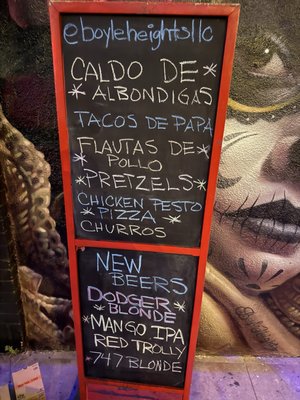 @boyleheightsllc
CALDO DE
ALBONDIGAS
TACOS DE PAPA
FLAUTAS DE
POLLO
PRETZELS
CHICKEN PESTO
PIZZA
CHURROS
NEW
BEERS
DODGER
BLONDE
MANGO IPA
RED TROLLY
747 BLONDE